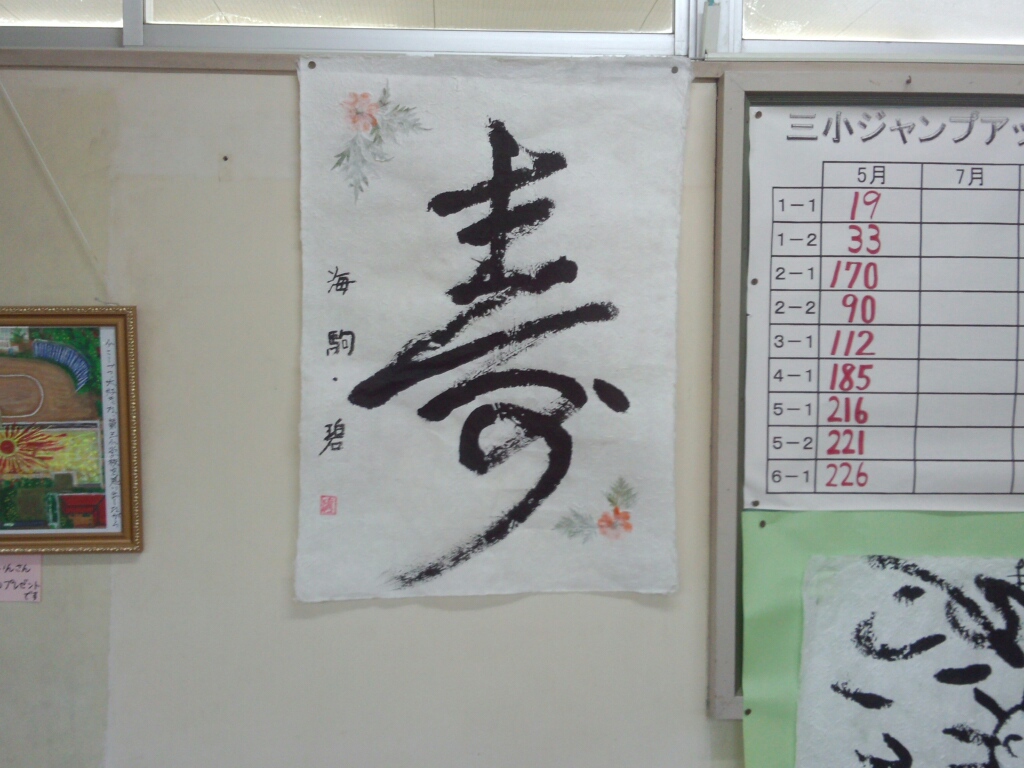 寿
海駒・碧
三小ジャンプアッ
5月 7月
1-1 19
1-2 33
2-1 170
2-2 90
3-1 112
4-1 185
5-1 216
5-2 221
6-1 226
プレゼント
です